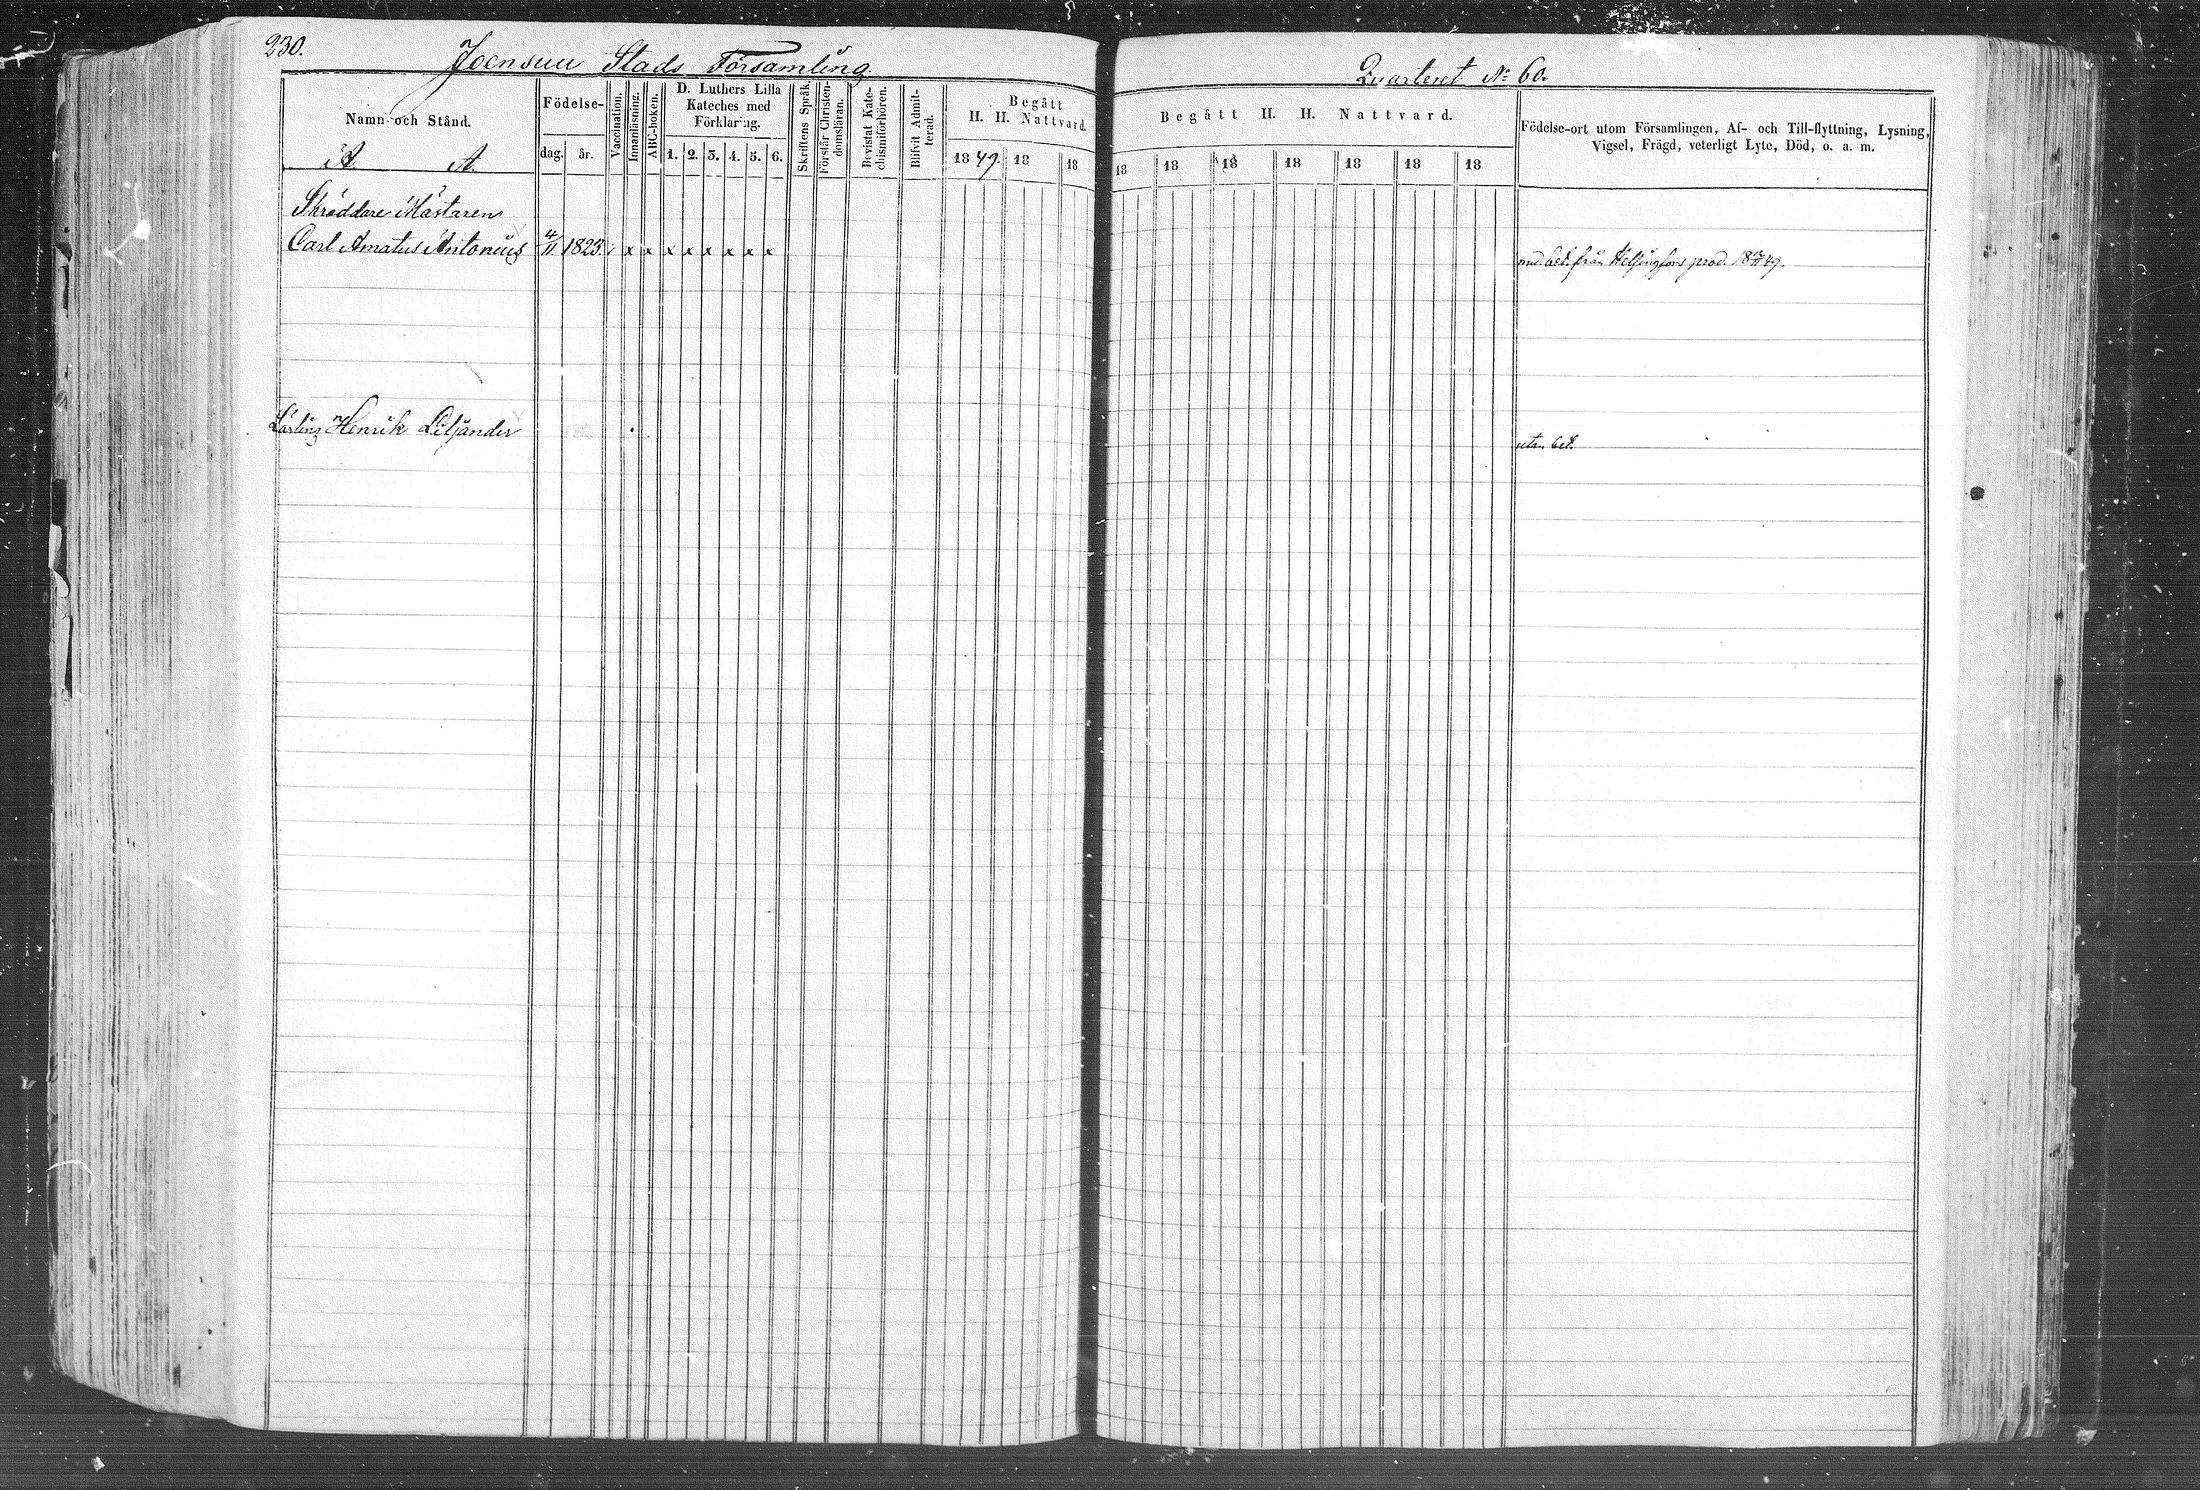 230.
Joensuu Stads Församling.
Quarteret No 60.
Namn och Stånd.
A. A.
Födelse-
dag. år.
Vaccination.
Innanläsning.
ABC-boken.
D. Luthers Lilla
Kateches med
Förklaring.
1. 2. 3. 4. 5. 6.
Skriftens Språk.
Förstår Christen-
domsläran.
Bevistat Kate-
chismiförhören.
Blifvit Admit-
terad.
Begått
H. H. Nattvard.
1849. 18 18
Begått H. H. Nattvard.
18 18 18 18 18 18 18
Födelse-ort utom Församlingen, Af- och Till-flyttning, Lysning,
Vigsel, Frägd, veterligt Lyte, Död, o. a. m.
Skräddare Mästaren
Carl Amatus Antonius 4/11 1823. x x x x x x x x
med bet. från Helsingfors prod. 18 49.
Lärling Henrik Liljander
utan bet.